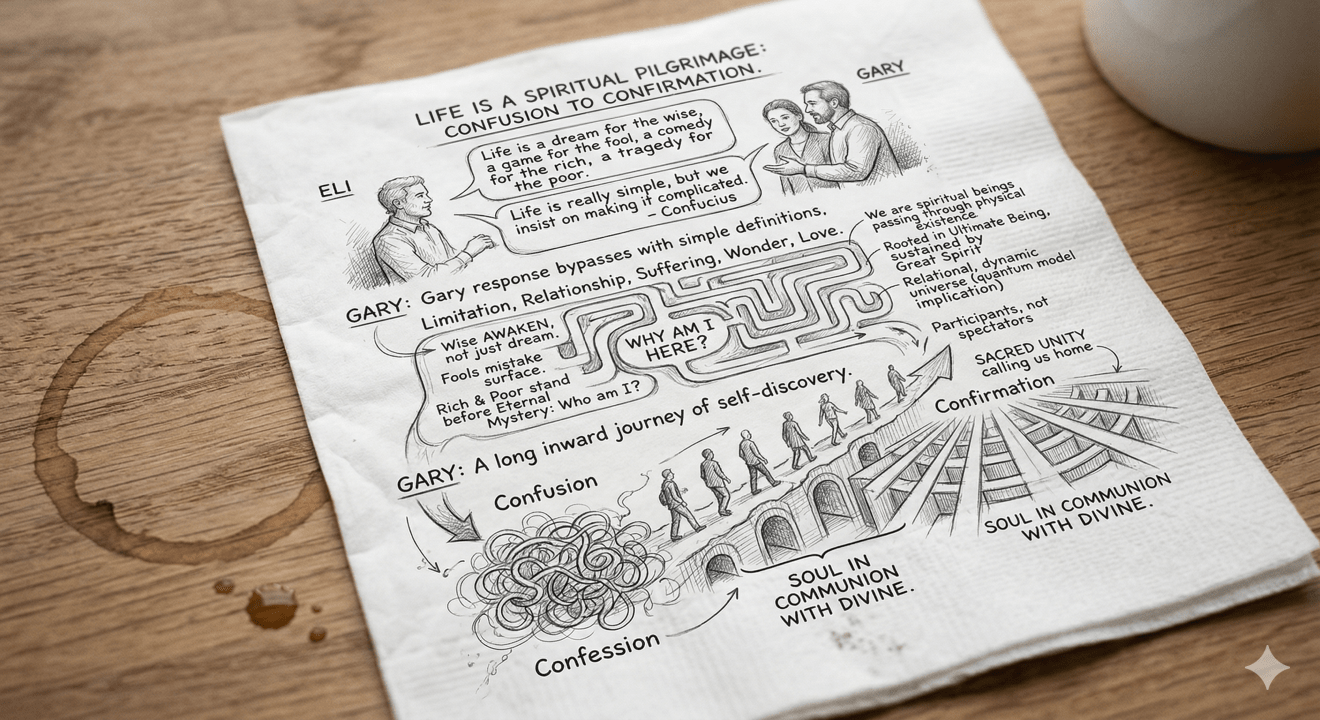 LIFE IS A SPIRITUAL PILGRIMAGE:
CONFUSION TO CONFIRMATION.
ELI
GARY
Life is a dream for the wise,
a game for the fool, a comedy
for the rich, a tragedy for
the poor.
Life is really simple, but we
insist on making it complicated.
– Confucius
GARY: Gary response bypasses with simple definitions,
Limitation, Relationship, Suffering, Wonder, Love.
We are spiritual beings
passing through physical
existence
Rooted in Ultimate Being,
sustained by
Great Spirit
Relational, dynamic
universe (quantum model
implication)
Participants, not
spectators
SACRED UNITY
calling us home
Wise AWAKEN,
not just dream.
Fools mistake
surface.
Rich & Poor stand
before Eternal
Mystery: Who am I?
WHY AM I
HERE?
GARY: A long inward journey of self-discovery.
Confusion
Confirmation
Confession
SOUL IN
COMMUNION
WITH DIVINE.
SOUL IN COMMUNION
WITH DIVINE.